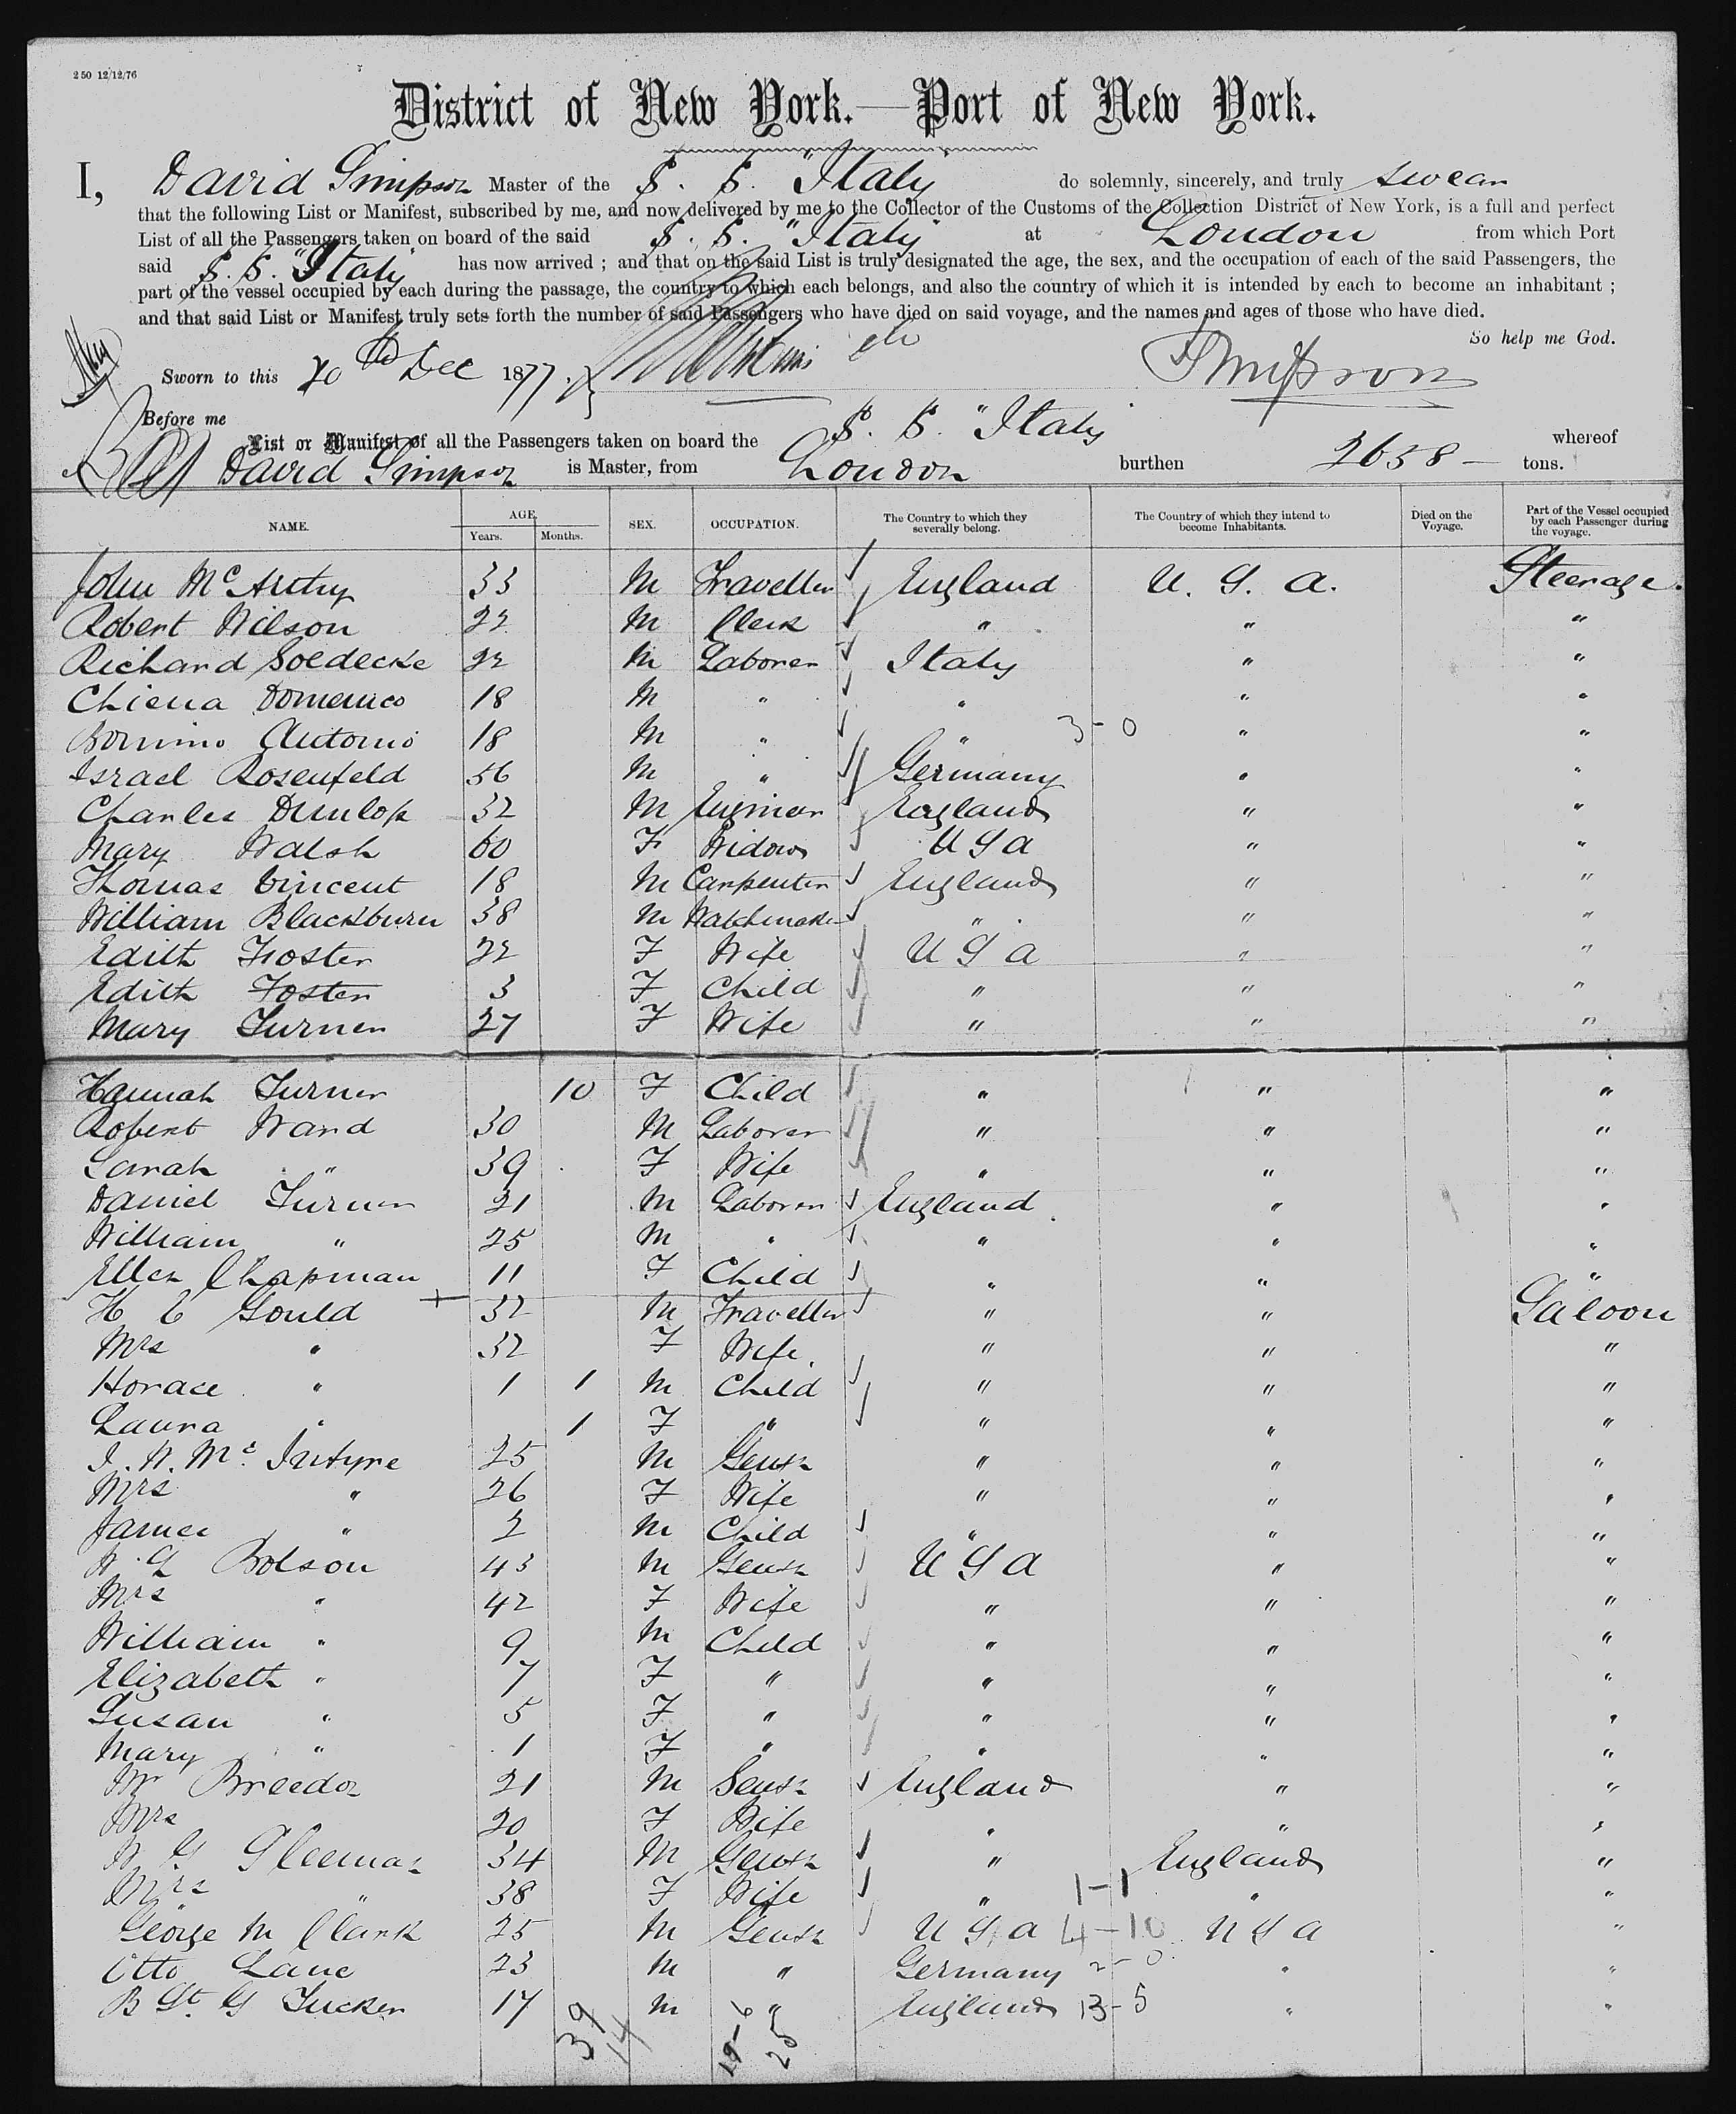 250 12/12/76
District of New York.—Port of New York.
I, David Simpson Master of the S. S. "Italy" do solemnly, sincerely, and truly swear
that the following List or Manifest, subscribed by me, and now delivered by me to the Collector of the Customs of the Collection District of New York, is a full and perfect
List of all the Passengers taken on board of the said S. S. "Italy" at London from which Port
said S. S. "Italy" has now arrived ; and that on the said List is truly designated the age, the sex, and the occupation of each of the said Passengers, the
part of the vessel occupied by each during the passage, the country to which each belongs, and also the country of which it is intended by each to become an inhabitant ;
and that said List or Manifest truly sets forth the number of said Passengers who have died on said voyage, and the names and ages of those who have died.
So help me God.
Sworn to this 20th Dec 1877. DSimpson
Before me
List or Manifest of all the Passengers taken on board the S. S. "Italy" whereof
David Simpson is Master, from London burthen 2658 — tons.
NAME. AGE. SEX. OCCUPATION. The Country to which they severally belong. The Country of which they intend to become Inhabitants. Died on the Voyage. Part of the Vessel occupied by each Passenger during the voyage.
Years. Months.
John McArthy 33 M Traveller England U. S. A. Steerage.
Robert Wilson 22 M Clerk " " "
Richard Soedecke 22 M Laborer Italy " "
Chiena Domenico 18 M " " " "
Bonino Antonio 18 M " " 3-0 " "
Israel Rosenfeld 56 M " Germany " "
Charles Dunlop 32 M Engineer England " "
Mary Walsh 60 F Widow U S A " "
Thomas Vincent 18 M Carpenter England " "
William Blackburn 38 M Watchmaker " " "
Edith Foster 22 F Wife U S A " "
Edith Foster 3 F Child " " "
Mary Turner 27 F Wife " " "
Hannah Turner 10 F Child " " "
Robert Ward 30 M Laborer " " "
Sarah " 39 F Wife " " "
Daniel Turner 21 M Laborer England " "
William " 25 M " " " "
Ellen Chapman 11 F Child " " "
H C Gould 32 M Traveller " " Saloon
Mrs " 32 F Wife " " "
Horace " 1 1 M Child " " "
Laura " 1 F " " " "
J. W. Mc Intyre 25 M Gentn " " "
Mrs " 26 F Wife " " "
James " 2 M Child " " "
W. G Botson 43 M Gentn U S A " "
Mrs " 42 F Wife " " "
William " 9 M Child " " "
Elizabeth " 7 F " " " "
Susan " 5 F " " " "
Mary " 1 F " " " "
Mr Breedon 21 M Gentn England " "
Mrs 20 F Wife " " "
W G Gleeman 34 M Gentn " England "
Mrs " 38 F Wife " 1-1 " "
George M Clark 25 M Gentn U S A 4-10 U S A "
Otto Lane 23 M " Germany 2-0 " "
B St. G Tucker 17 M " England 13-5 " "
39
14
19-6
25